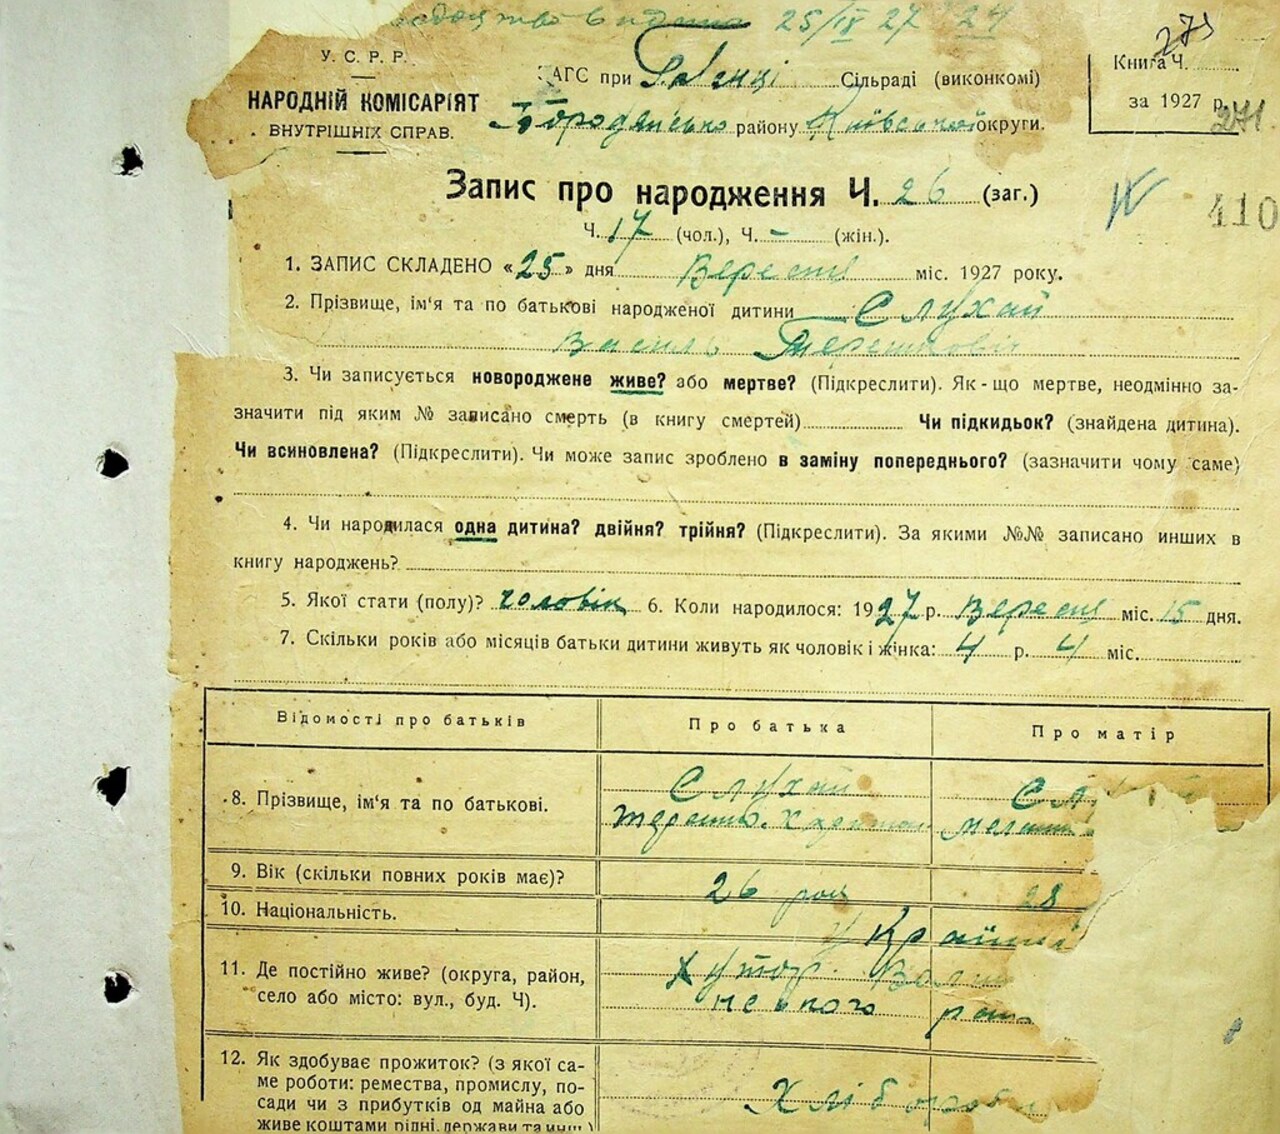 25/IX 27
У. С. Р. Р.
НАРОДНІЙ КОМІСАРІЯТ
ВНУТРІШНІХ СПРАВ.
ЗАГС при Сільраді (виконкомі)
району Київської округи.
Книга Ч. 271
за 1927 р.
271
Запис про народження Ч. 26 (заг.)
410
Ч. 17 (чол.), Ч. – (жін.).
1. ЗАПИС СКЛАДЕНО «25» дня Вересня міс. 1927 року.
2. Прізвище, ім'я та по батькові народженої дитини Слухай
Василь Терешкович
3. Чи записується новороджене живе? або мертве? (Підкреслити). Як-що мертве, неодмінно за-
значити під яким № записано смерть (в книгу смертей) Чи підкидьок? (знайдена дитина).
Чи всиновлена? (Підкреслити). Чи може запис зроблено в заміну попереднього? (зазначити чому саме)
4. Чи народилася одна дитина? двійня? трійня? (Підкреслити). За якими №№ записано инших в
книгу народжень?
5. Якої стати (полу)? чоловік 6. Коли народилося: 1927 р. Вересня міс. 15 дня.
7. Скільки років або місяців батьки дитини живуть як чоловік і жінка: 4 р. 4 міс.
Відомості про батьків Про батька Про матір
8. Прізвище, ім'я та по батькові. Слухай
9. Вік (скільки повних років має)? 26 рок 28
10. Національність.
11. Де постійно живе? (округа, район, Хутор.
село або місто: вул., буд. Ч).
12. Як здобуває прожиток? (з якої са-
ме роботи: ремества, промислу, по-
сади чи з прибутків од майна або
живе коштами рідні, держави та инш.)